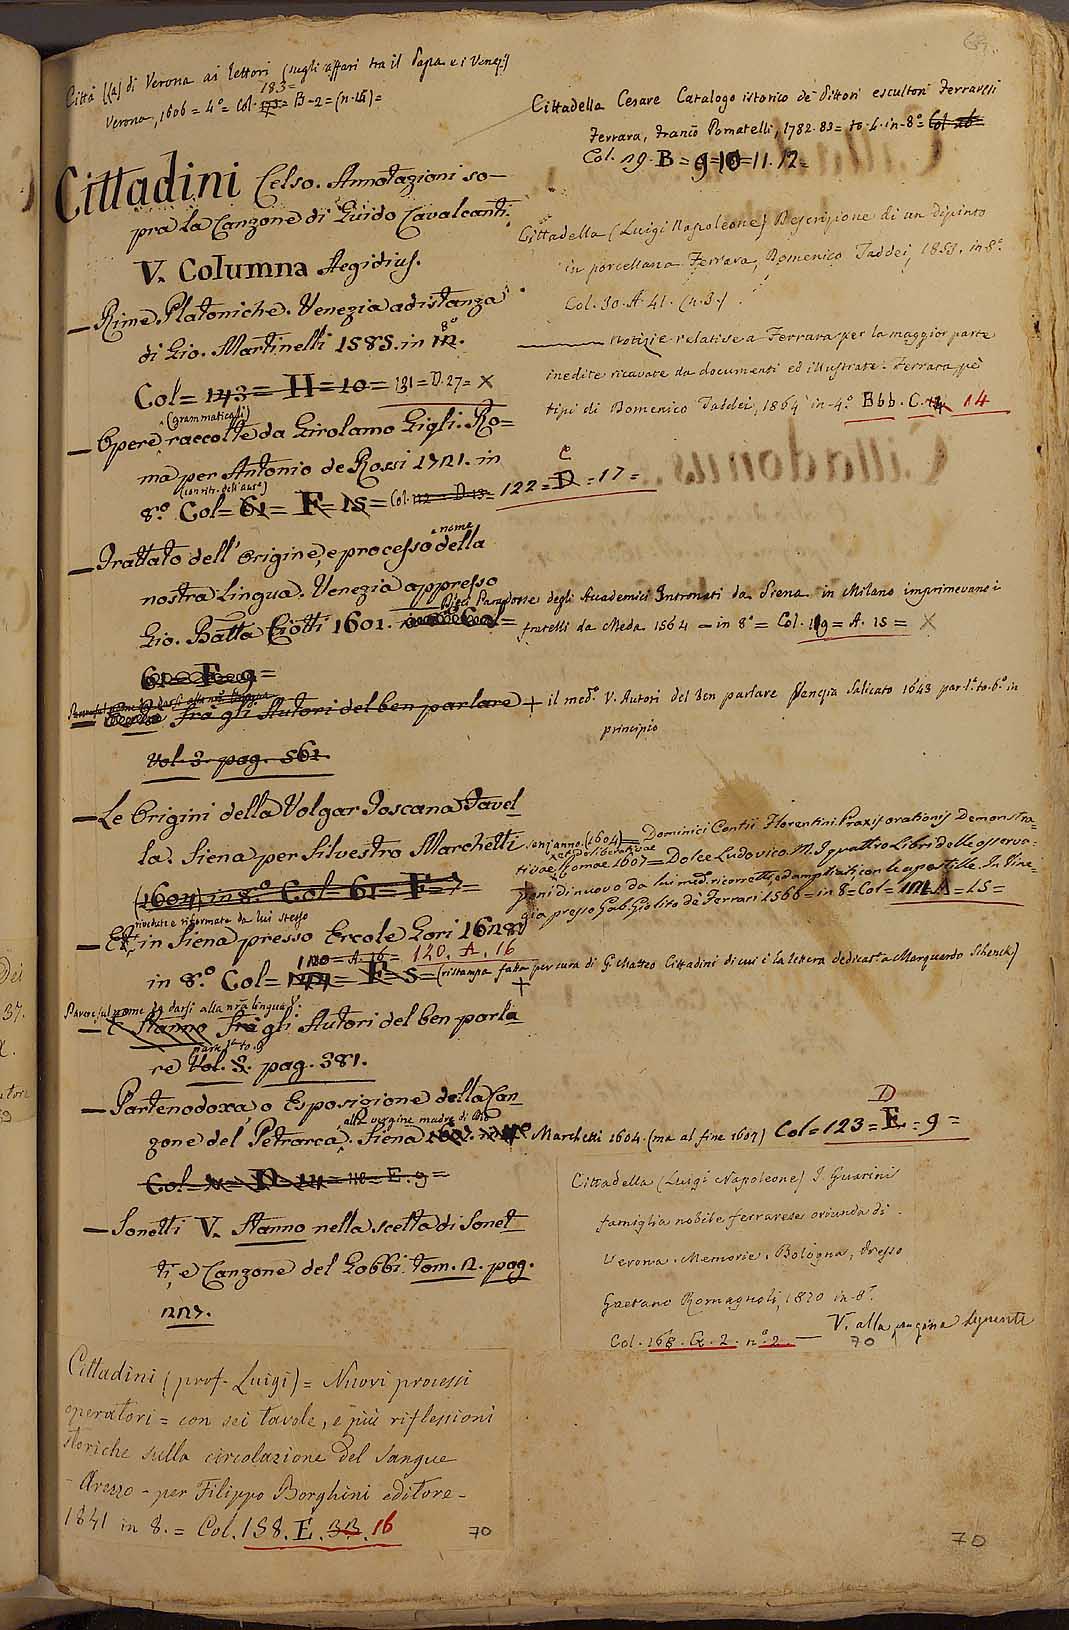 69.
Città (la) di Verona ai lettori (sugli affari tra il Papa e i Venez.)
183=
Verona, 1606 = 4° = Col. 173 = B-2 = (n. 14) =
Cittadini Celso. Annotazioni so-
pra la Canzone di Guido Cavalcanti.
V. Columna Aegidius.
— Rime Platoniche. Venezia ad istanza
di Gio. Martinelli 1585. in 12. 8°
Col = 143 = H = 10 = 131 = D. 27 = X
(grammaticali)
— Opere raccolte da Girolamo Gigli. Ro=
ma per Antonio de Rossi 1721. in
(con ritr. dell'aut.e)
8.° Col = 61 = F = 15 = Col. 112 = D. 13 = 122 = D = 17 =
C
e nome
— Trattato dell'Origine, e processo della
nostra Lingua. Venezia appresso
Gio. Batta Ciotti 1601. Col =
61 = F. 9 =
— fra gli Autori del ben parlare +
Vol. 3. pag. 561.
— Le Origini della Volgar Toscana Favel
la. Siena per Silvestro Marchetti
(1604) in 8.° Col = 61 = F = 7 =
rivedute e riformate da lui stesso
— Et in Siena presso Ercole Gori 1628
120 = A. 16 = 120. A. 16
in 8.° Col = = E = S = (ristampa fatta per cura di G. Matteo Cittadini di cui è la lettera dedicat.a a Marquardo Schenck)
+
Parere sul nome da darsi alla nra lingua V.
— E Stanno fra gli Autori del ben parla
re Vol. 3. pag. 381.
— Partenodoxa, o Esposizione della Can
alla vergine madre di Dio
zone del Petrarca. Siena 1607. Marchetti 1604. (ma al fine 1607) Col = 123 = E = 9 =
D
Col = = D = = 118 = E. 9 =
— Sonetti V. Stanno nella scelta di Sonet
ti, e Canzone del Gobbi. tom. 2. pag.
227.
Cittadini (prof. Luigi) = Nuovi processi
operatori = con sei tavole, e più riflessioni
storiche sulla circolazione del sangue
- Arezzo - per Filippo Borghini editore -
1841 in 8. = Col. 158. E. 33. 16
70
Cittadella Cesare Catalogo istorico de' Pittori escultori Ferraresi
Ferrara, Franc.o Pomatelli, 1782. 83 = to. 4. in-8° =
Col. 29. B = 9=10=11. 12=
Cittadella (Luigi Napoleone) Descrizione di un dipinto
in porcellana Ferrara, Domenico Taddei, 1855. in 8.°
Col. 30. A. 41. (n. 3.)
— Notizie relative a Ferrara per la maggior parte
inedite ricavate da documenti ed illustrate. Ferrara, pe'
tipi di Domenico Taddei, 1864 in-4.° Bbb. C. 14 14
Dieci Paradosse degli Academici Intronati da Siena in Milano imprimevano i
fratelli da Meda 1564 — in 8° = Col. 119 = A. 15 = X
il med.° V. Autori del Ben parlare Venezia Salicato 1643 par. 1.a to. 6.° in
principio
senz'anno. (1604) = Dominici Contii Florentini. Praxis orationis Demonstra-
tivae, et deliberativae Romae 1607 = Dolce Ludovico. M. I quattro Libri delle osserva-
zioni di nuovo da lui med. ricorretti, ed ampliati, con le apostille. In Vine-
gia presso Gab. Giolito de' Ferrari 1566 = in 8 = Col = 121 A = 15 =
Cittadella (Luigi Napoleone) I Guarini
famiglia nobile ferrarese oriunda di
Verona. Memorie. Bologna, presso
Gaetano Romagnoli, 1870 in-8.°
Col. 168. G. 2. n.° 2. — V. alla pagina seguente
70
70